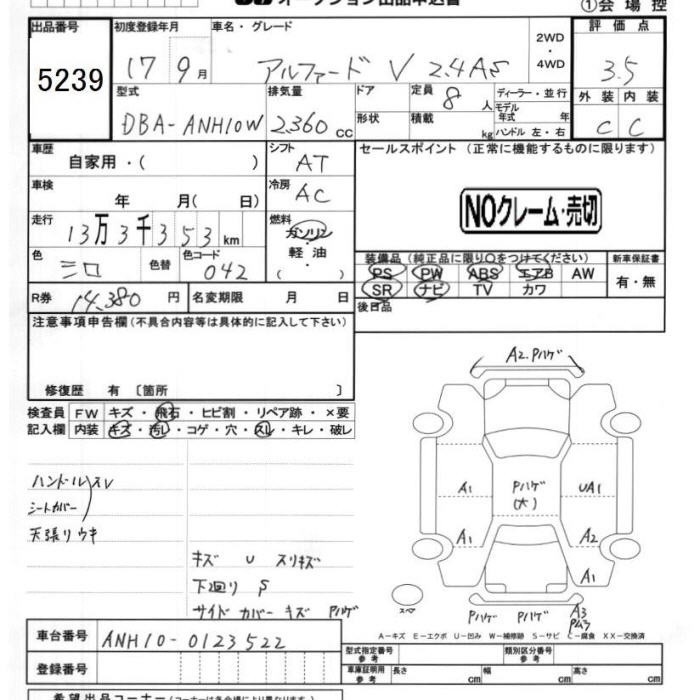 オークション出品申込書
①会場控
出品番号 初度登録年月 車名・グレード 2WD・4WD 評価点
5239 17 9月 アルファード V 2.4AS 3.5
型式 排気量 ドア 定員 8 人 ディーラー・並行 外装 内装
DBA-ANH10W 2360 cc 形状 積載 kg モデル年式 年 ハンドル 左・右 C C
車歴 シフト セールスポイント (正常に機能するものに限ります)
自家用・( ) AT
車検 冷房
年 月( 日) AC
NOクレーム・売切
走行 燃料
13万3千353km ガソリン
軽油
( )
色 色替 色コード
シロ 042
装備品 (純正品に限り○をつけてください) 新車保証書
PS PW ABS エアB AW 有・無
SR ナビ TV カワ
R券 14,380 円 名変期限 月 日 後日品
注意事項申告欄(不具合内容等は具体的に記入して下さい)
修復歴 有 〔箇所 〕
検査員 FW キズ・飛石・ヒビ割・リペア跡・×要
記入欄 内装 キズ・汚レ・コゲ・穴・スレ・キレ・破レ
ハンドルスレ
シートカバー
天張リウキ
キズ U スリキズ
下廻り S
サイドカバー キズ Pハゲ
A2.Pハゲ
A1 Pハゲ(大) UA1
A1 A2
A1
スペア Pハゲ Pハゲ A3
A−キズ E−エクボ U−凹み W−補修跡 S−サビ C−腐食 XX−交換済
車台番号 ANH10-0123522
登録番号
型式指定番号 参考 類別区分番号 参考
車庫証明用 参考 長さ cm 幅 cm 高さ cm
希望出品コーナー(コーナーは各会場により異なります。)